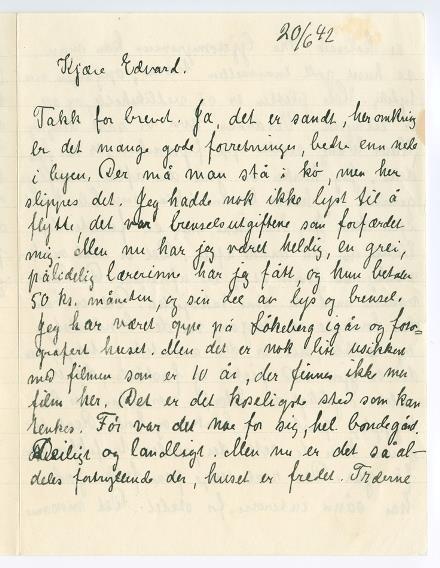 20/6 42
Kjære Edvard.
Takk for brevet. Ja, det er sandt, heromkring
er det mange gode forretninger, bedre enn nede
i byen. Der må man stå i kø, men her
slippes det. Jeg hadde nok ikke lyst til å
flytte, det var brenselsutgiftene som forfærdet
mig. Men nu har jeg været heldig, en grei,
pålidelig lærerinne har jeg fått, og hun betaler
50 ks. måneden, og sin del av lys og brensel.
Jeg har været oppe på Løkeberg igår og foto=
grafert huset. Men det er nok litt usikkert
med filmen som er 10 år, der finnes ikke mer
film her. Det er det koseligste sted som kan
tenkes. Før var det noe for sig, hel bondegård.
Deiligt og landligt. Men nu er det så al-
deles fortryllende der, huset er fredet. Trærne